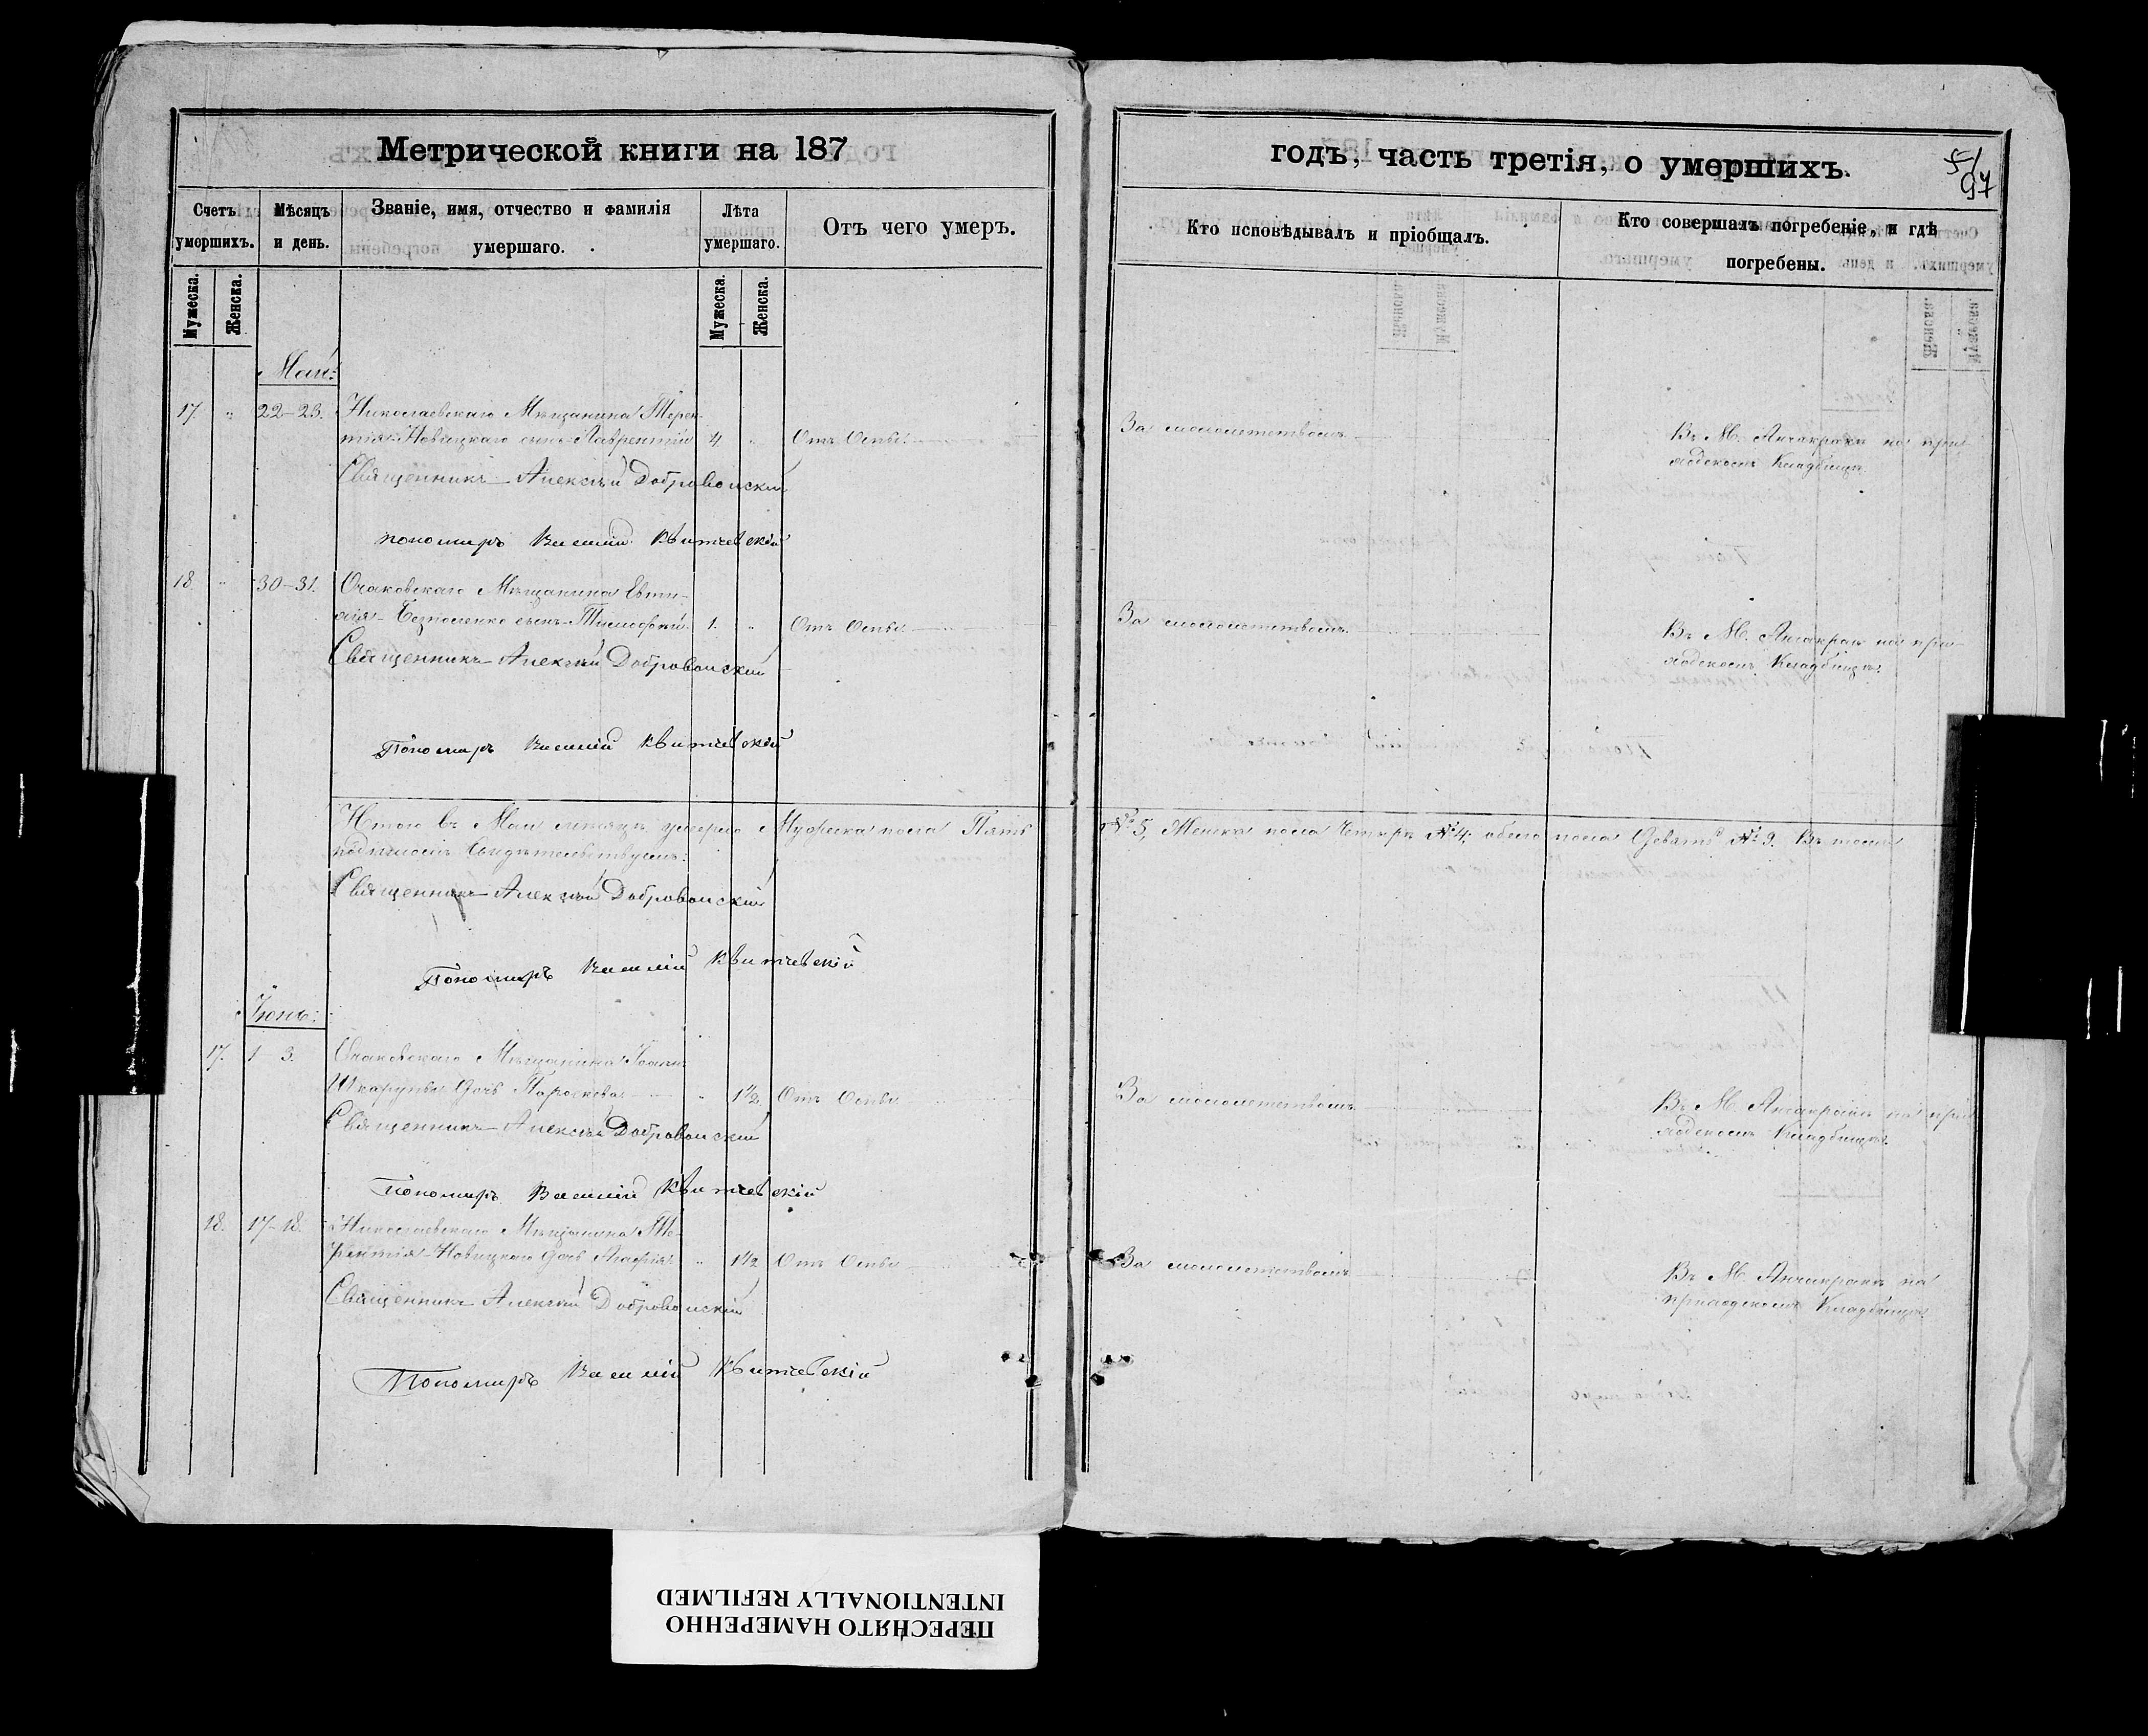 Метрической книги на 187
годъ, часть третія, о умершихъ.
5/
97
Счетъ умершихъ.
Мѣсяцъ и день.
Званіе, имя, отчество и фамилія
умершаго.
Лѣта умершаго.
Отъ чего умеръ.
Кто исповѣдывалъ и пріобщалъ.
Кто совершалъ погребеніе, и гдѣ
погребены.
Мужеска.
Женска.
Мужеска.
Женска.
Май:
17. " 22–23. Николаевскаго Мѣщанина Терен-
тія Новицкаго сынъ Лаврентій 4 " Отъ Оспы.
За малолетствомъ.
Въ М. Анчакракѣ на при-
ходскомъ Кладбищѣ.
Священникъ Алексѣй Добровольскій
пономаръ Василій
18. " 30–31. Очаковскаго Мѣщанина Евти-
хія сынъ Тимофѣй. 1. " Отъ Оспы.
За малолетствомъ.
Въ М. Анчакракѣ на при-
ходскомъ Кладбищѣ.
Священникъ Алексѣй Добровольскій
Пономаръ Василій
Итого въ Маи месяцѣ умерло Мужеска пола Пять № 5, Женска пола Четыре № 4, обоего пола Девять № 9. Въ томъ
подписомъ Свидѣтельствуемъ:
Священникъ Алексѣй Добровольскій
Пономаръ Василій
Іюнь:
17. 1 3. Очаковскаго Мѣщанина Іоанна
Шкарупы дочь Параскева " 1½ Отъ Оспы
За малолетствомъ.
Въ М. Анчакракѣ на при-
ходскомъ Кладбищѣ.
Священникъ Алексѣй Добровольскій
Пономаръ Василій
18. 17–18. Николаевскаго Мѣщанина Те-
рентія Новицкаго дочь " 1½ Отъ Оспы
За малолетствомъ
Въ М. Анчакракѣ на
приходскомъ Кладбищѣ.
Священникъ Алексѣй Добровольскій
Пономаръ Василій
ПЕРЕСНЯТО НАМЕРЕННО
INTENTIONALLY REFILMED